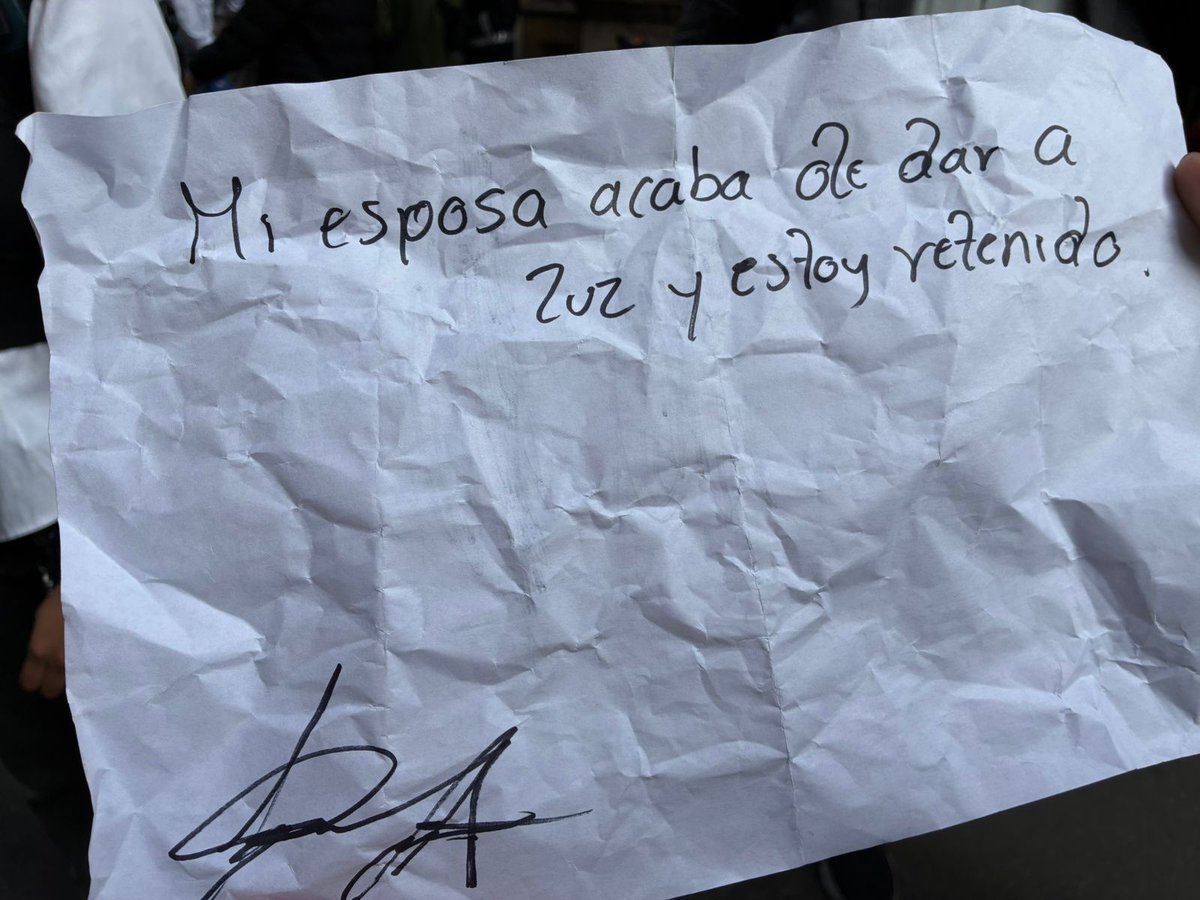 Mi esposa acaba de dar a
luz y estoy retenido.